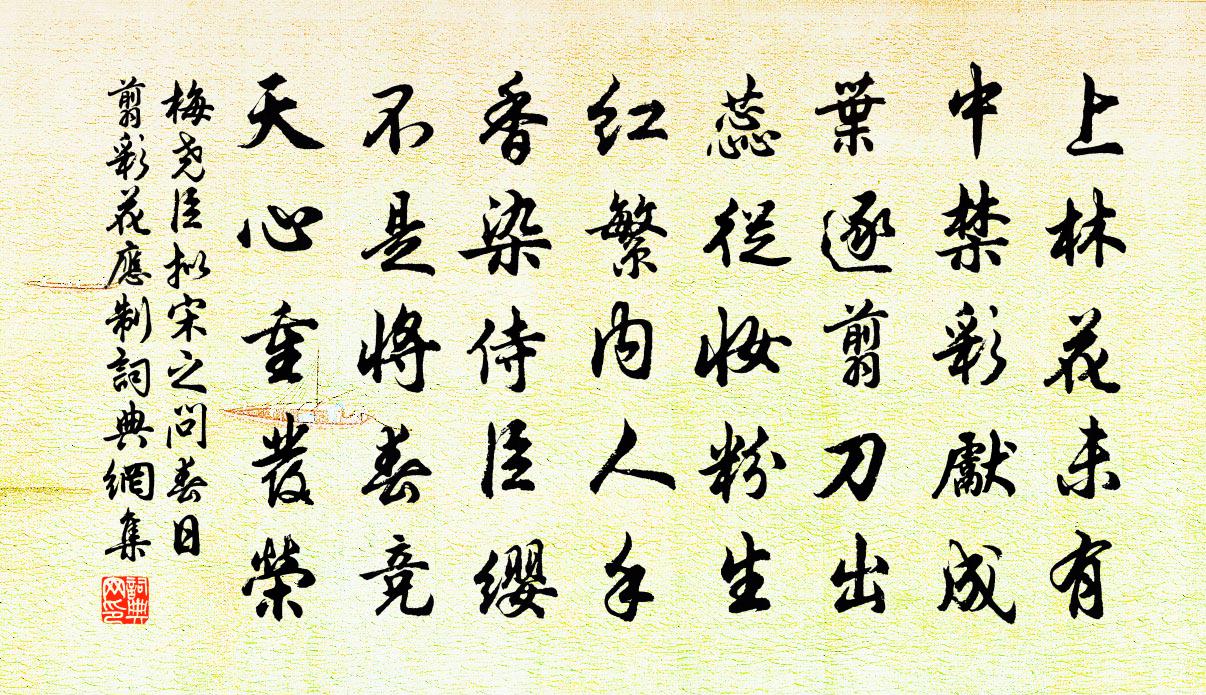 上林花未有
中禁彩獻成
葉逐剪刀出
蕊從妝粉生
红繁内人手
香染侍臣缨
不是將春竞
天心重發榮
梅尧臣拟宋之问春日
翦彩花應制詞典網集
詞典网印